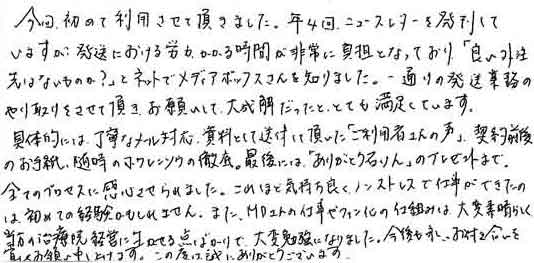 今回、初めて利用させて頂きました。年4回、ニュースレターを発刊して
いますが、発送における労力、かかる時間が非常に負担となっており、「良い外注
先はないものか?」とネットでメディアボックスさんを知りました。一通りの発送業務の
やり取りをさせて頂き、お願いして、大成解だったと、とても満足しています。
具体的には、丁寧なメール対応、資料として送付して頂いた「ご利用者さんの声」、契約前後
のお手紙、随時のホウレンソウの徹底。最後には、「ありがとう石けん」のプレゼントまで。
全てのプロセスに感心させられました。これほど気持ち良く、ノンストレスで仕事ができたの
は初めての経験かもしれません。また、M.D.さんの仕事やファン化の仕組みは大変素晴らしく
当方の治療院経営に生かせる点ばかりで、大変勉強になりました。今後も永いお付き合いを
宜しくお願い申し上げます。この度は誠にありがとうございます。